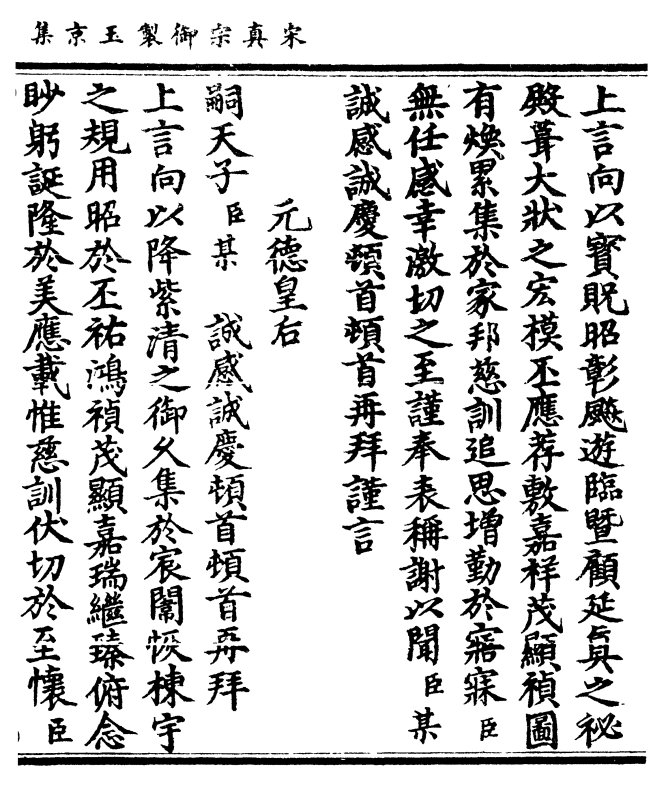 宋真宗御製玉京集
上言向以寳貺昭彰飇遊臨暨顧延真之祕
殿葺大壯之宏模丕應荐敷嘉祥茂顯禎圖
有煥累集於家邦慈訓追思增勤於寤寐臣
無任感幸激切之至謹奉表稱謝以聞臣某
誠感誠慶頓首頓首再拜謹言
元德皇后
嗣天子臣某 誠感誠慶頓首頓首再拜
上言向以降紫清之御久集於宸闈恢棟宇
之規用昭於丕祐鴻禎茂顯嘉瑞繼臻俯念
眇躬誕隆於美應載惟慈訓伏切於至懷臣